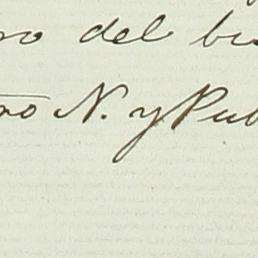 ro del bu
ro N. y Pub